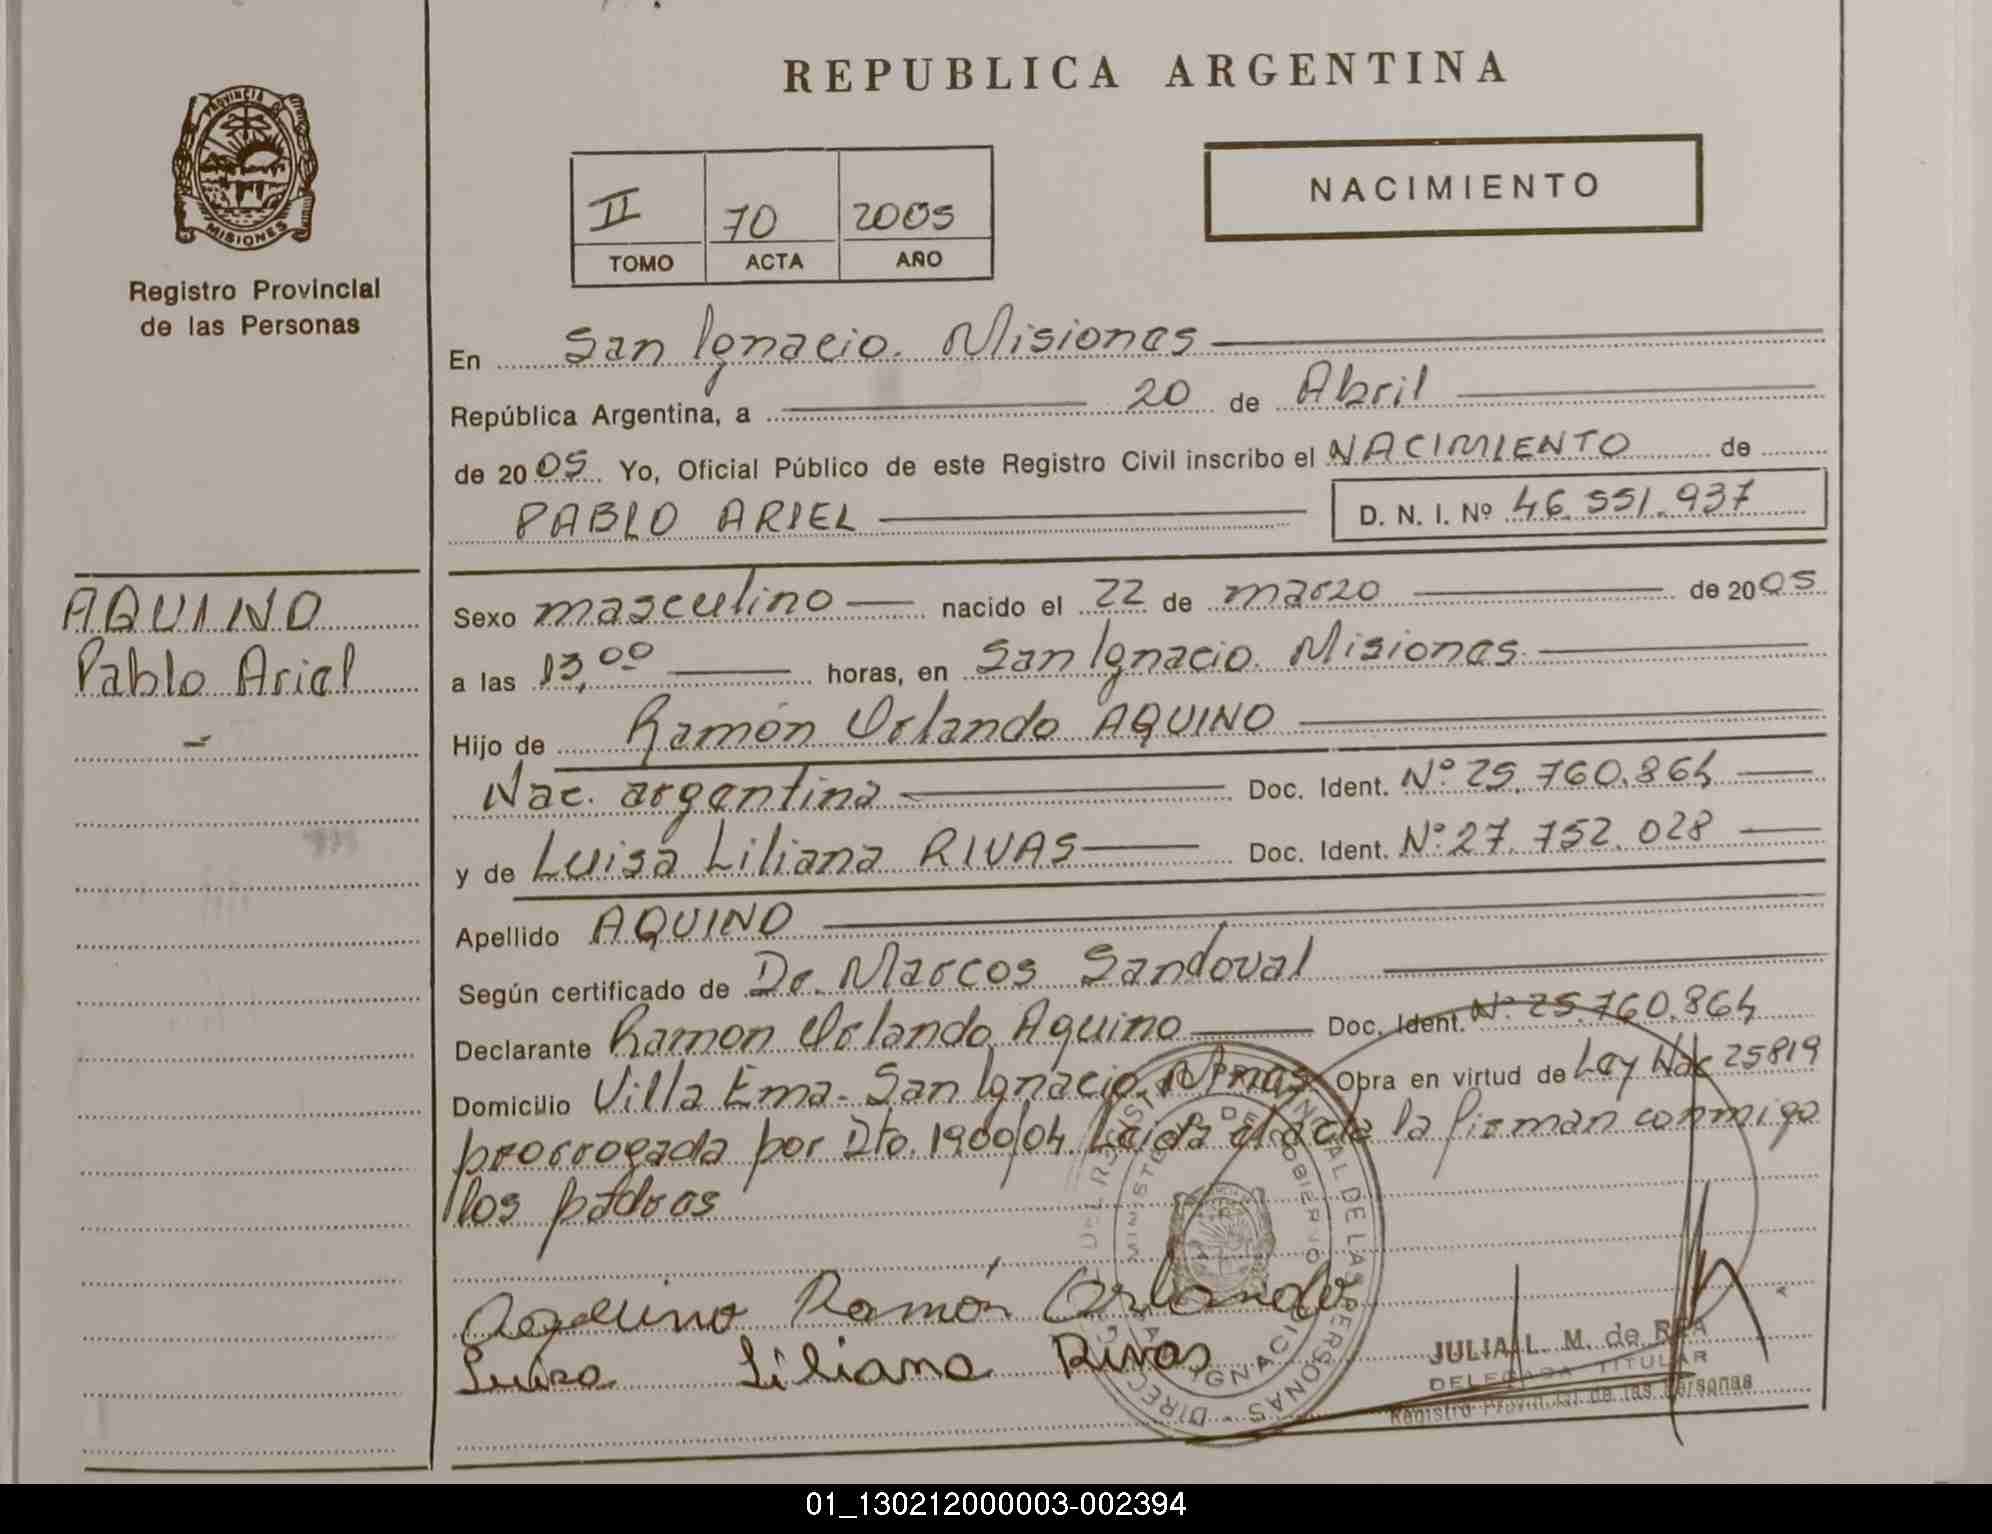 REPUBLICA ARGENTINA
PROVINCIA DE
MISIONES
Registro Provincial
de las Personas
II 70 2005
TOMO ACTA AÑO
NACIMIENTO
En San Ignacio. Misiones
República Argentina, a 20 de Abril
de 2005 Yo, Oficial Público de este Registro Civil inscribo el NACIMIENTO de
PABLO ARIEL D. N. I. Nº 46.551.937
AQUINO
Pablo Ariel
Sexo masculino nacido el 22 de marzo de 2005
a las 13,00 horas, en San Ignacio. Misiones
Hijo de Ramón Orlando AQUINO
Nac. argentina Doc. Ident. Nº 25.760.864
y de Luisa Liliana RIVAS Doc. Ident. Nº 27.752.028
Apellido AQUINO
Según certificado de Dr. Marcos Sandoval
Declarante Ramon Orlando Aquino Doc. Ident. Nº 25.760.864
Domicilio Villa Ema - San Ignacio. Mnes Obra en virtud de Ley Nac 25819
prorrogada por Dto. 1900/04. Leida el acta la firman conmigo
los padres
Aquino Ramón Orlando
Luisa Liliana Rivas
JULIA L. M. de REA
DELEGADA TITULAR
Registro Provincial de las Personas
01_130212000003-002394